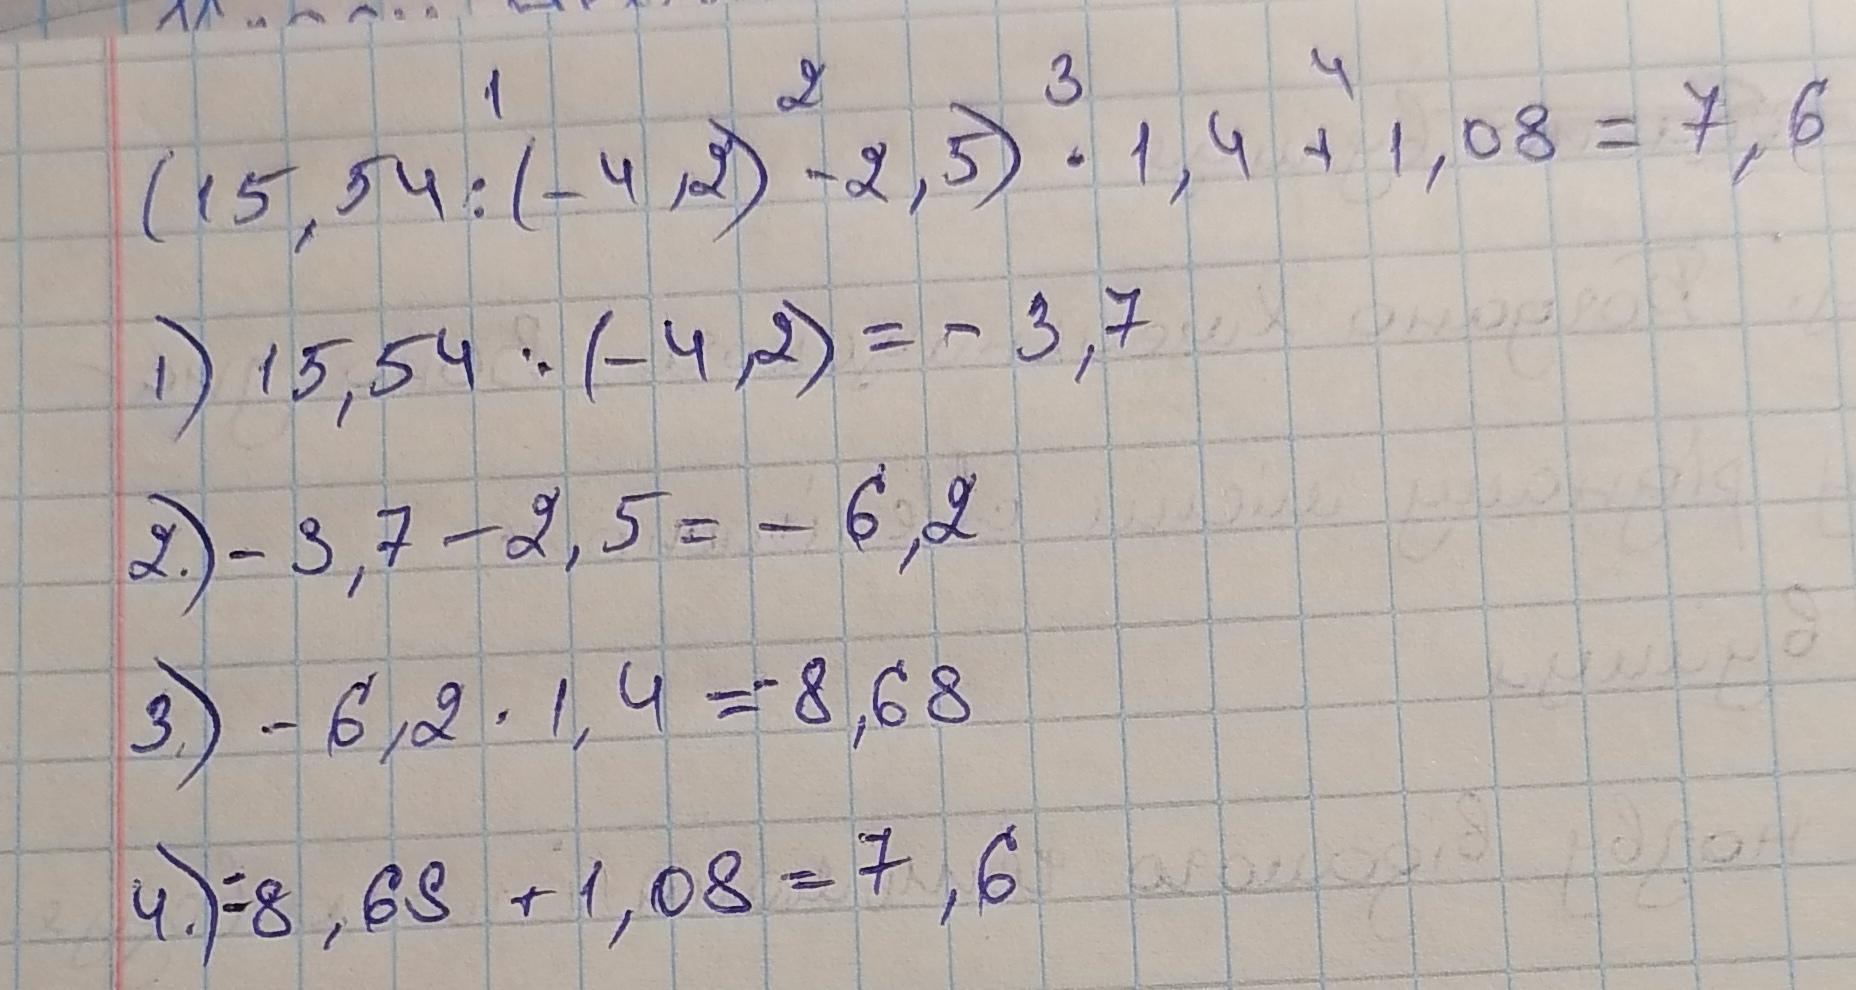 1 2 3 4
(15,54:(-4,2)-2,5)·1,4+1,08=7,6
1) 15,54:(-4,2)=-3,7
2.) -3,7-2,5=-6,2
3.) -6,2·1,4=-8,68
4.) -8,68+1,08=7,6